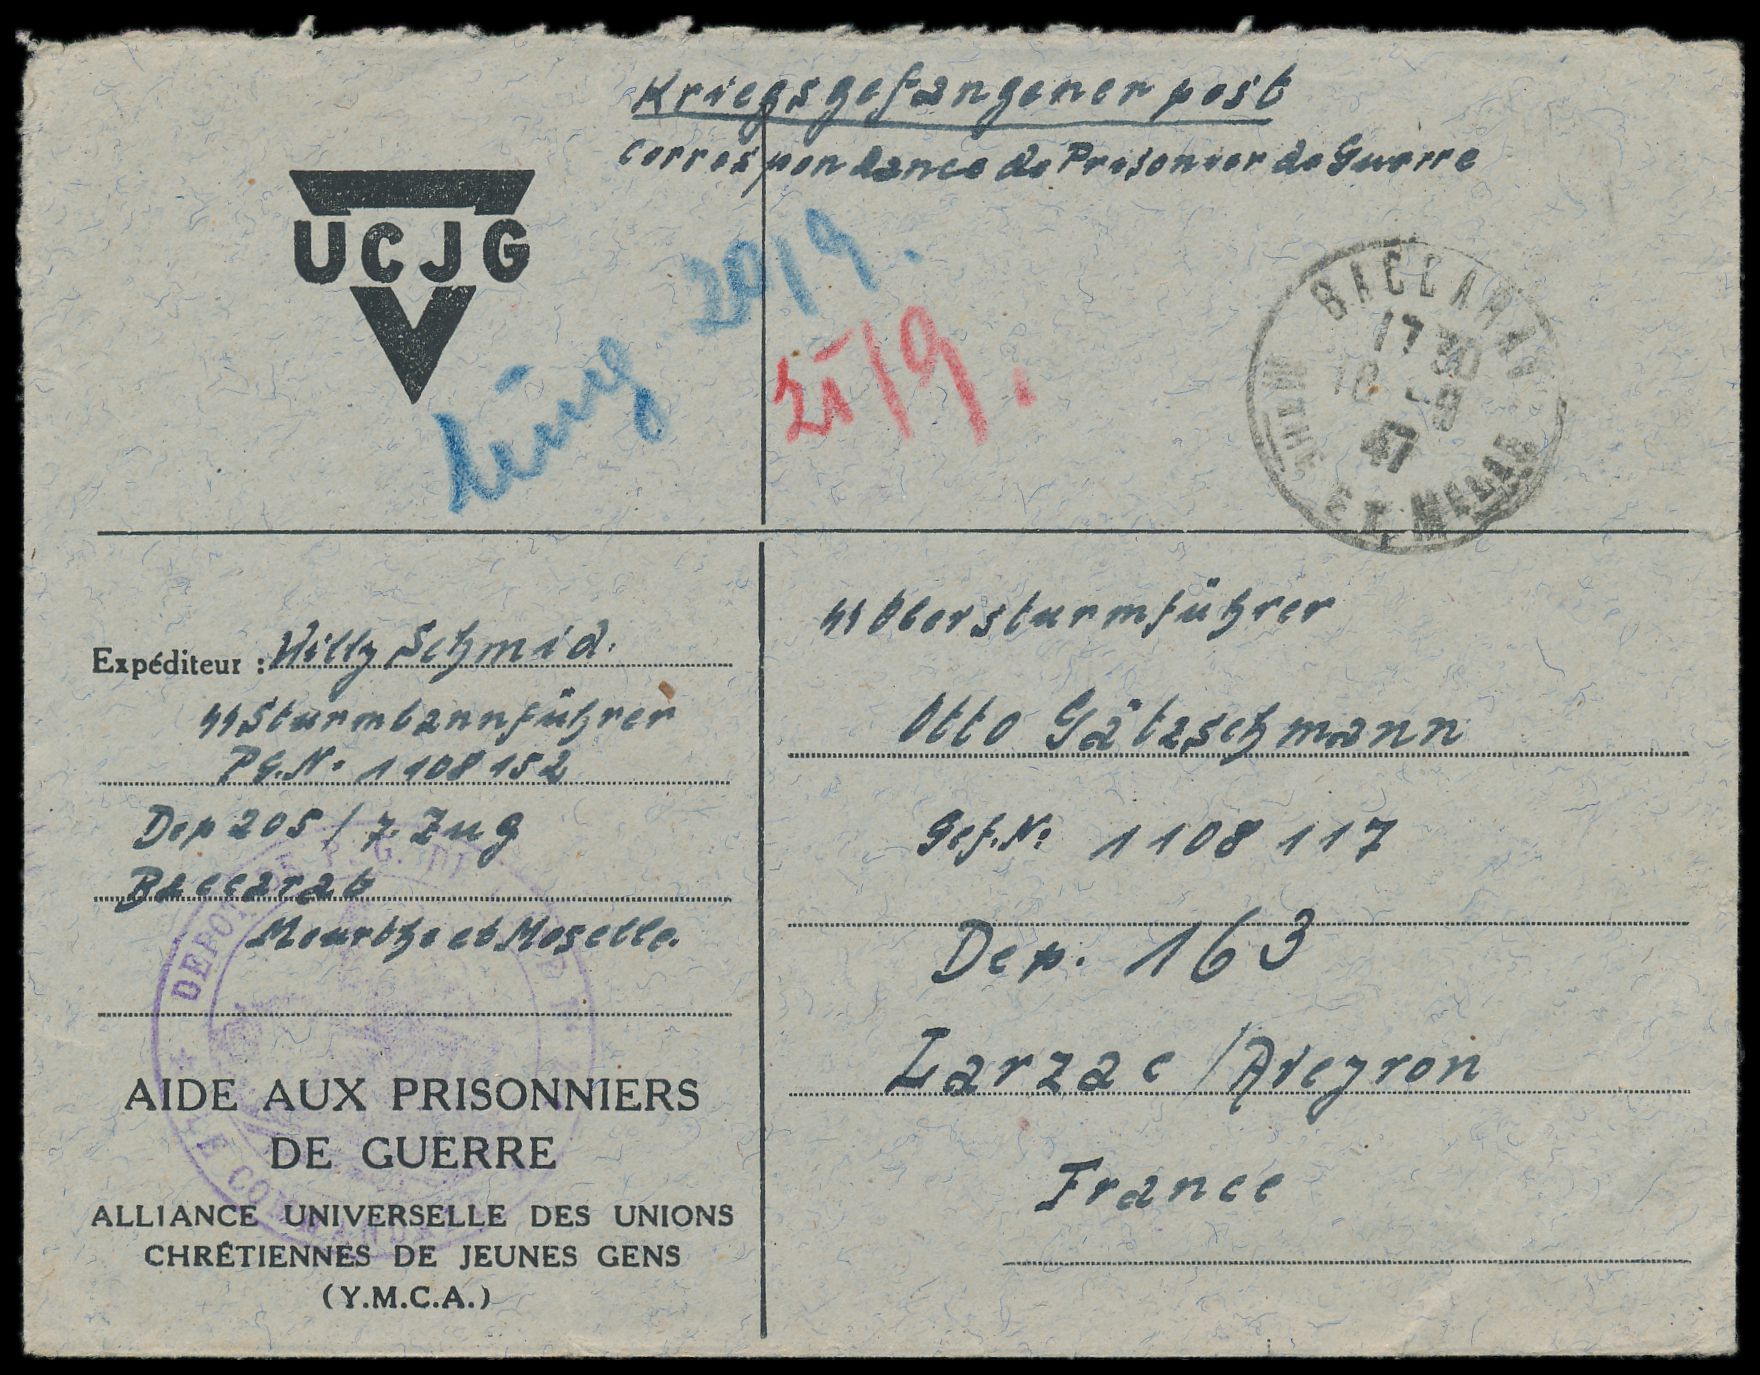 Kriegsgefangenerpost
Correspondance de Prisonier de Guerre
UCJG
20/9.
21/9.
BACCARAT
17 30
18 -9
47
MRTHE ET MELLE
Expéditeur : Willy Schmid.
SS Sturmbannführer
PG.Nº 1108152
Dep 205 / 7. Zug
Baccarat
Meurthe et Moselle.
DEPOT DE P.G. DE
LE COMMANDANT
AIDE AUX PRISONNIERS
DE GUERRE
ALLIANCE UNIVERSELLE DES UNIONS
CHRÉTIENNES DE JEUNES GENS
(Y.M.C.A.)
SS Obersturmführer
Otto Gätzschmann
Gef.Nº 1108117
Dep. 163
Larzac / Aveyron
France